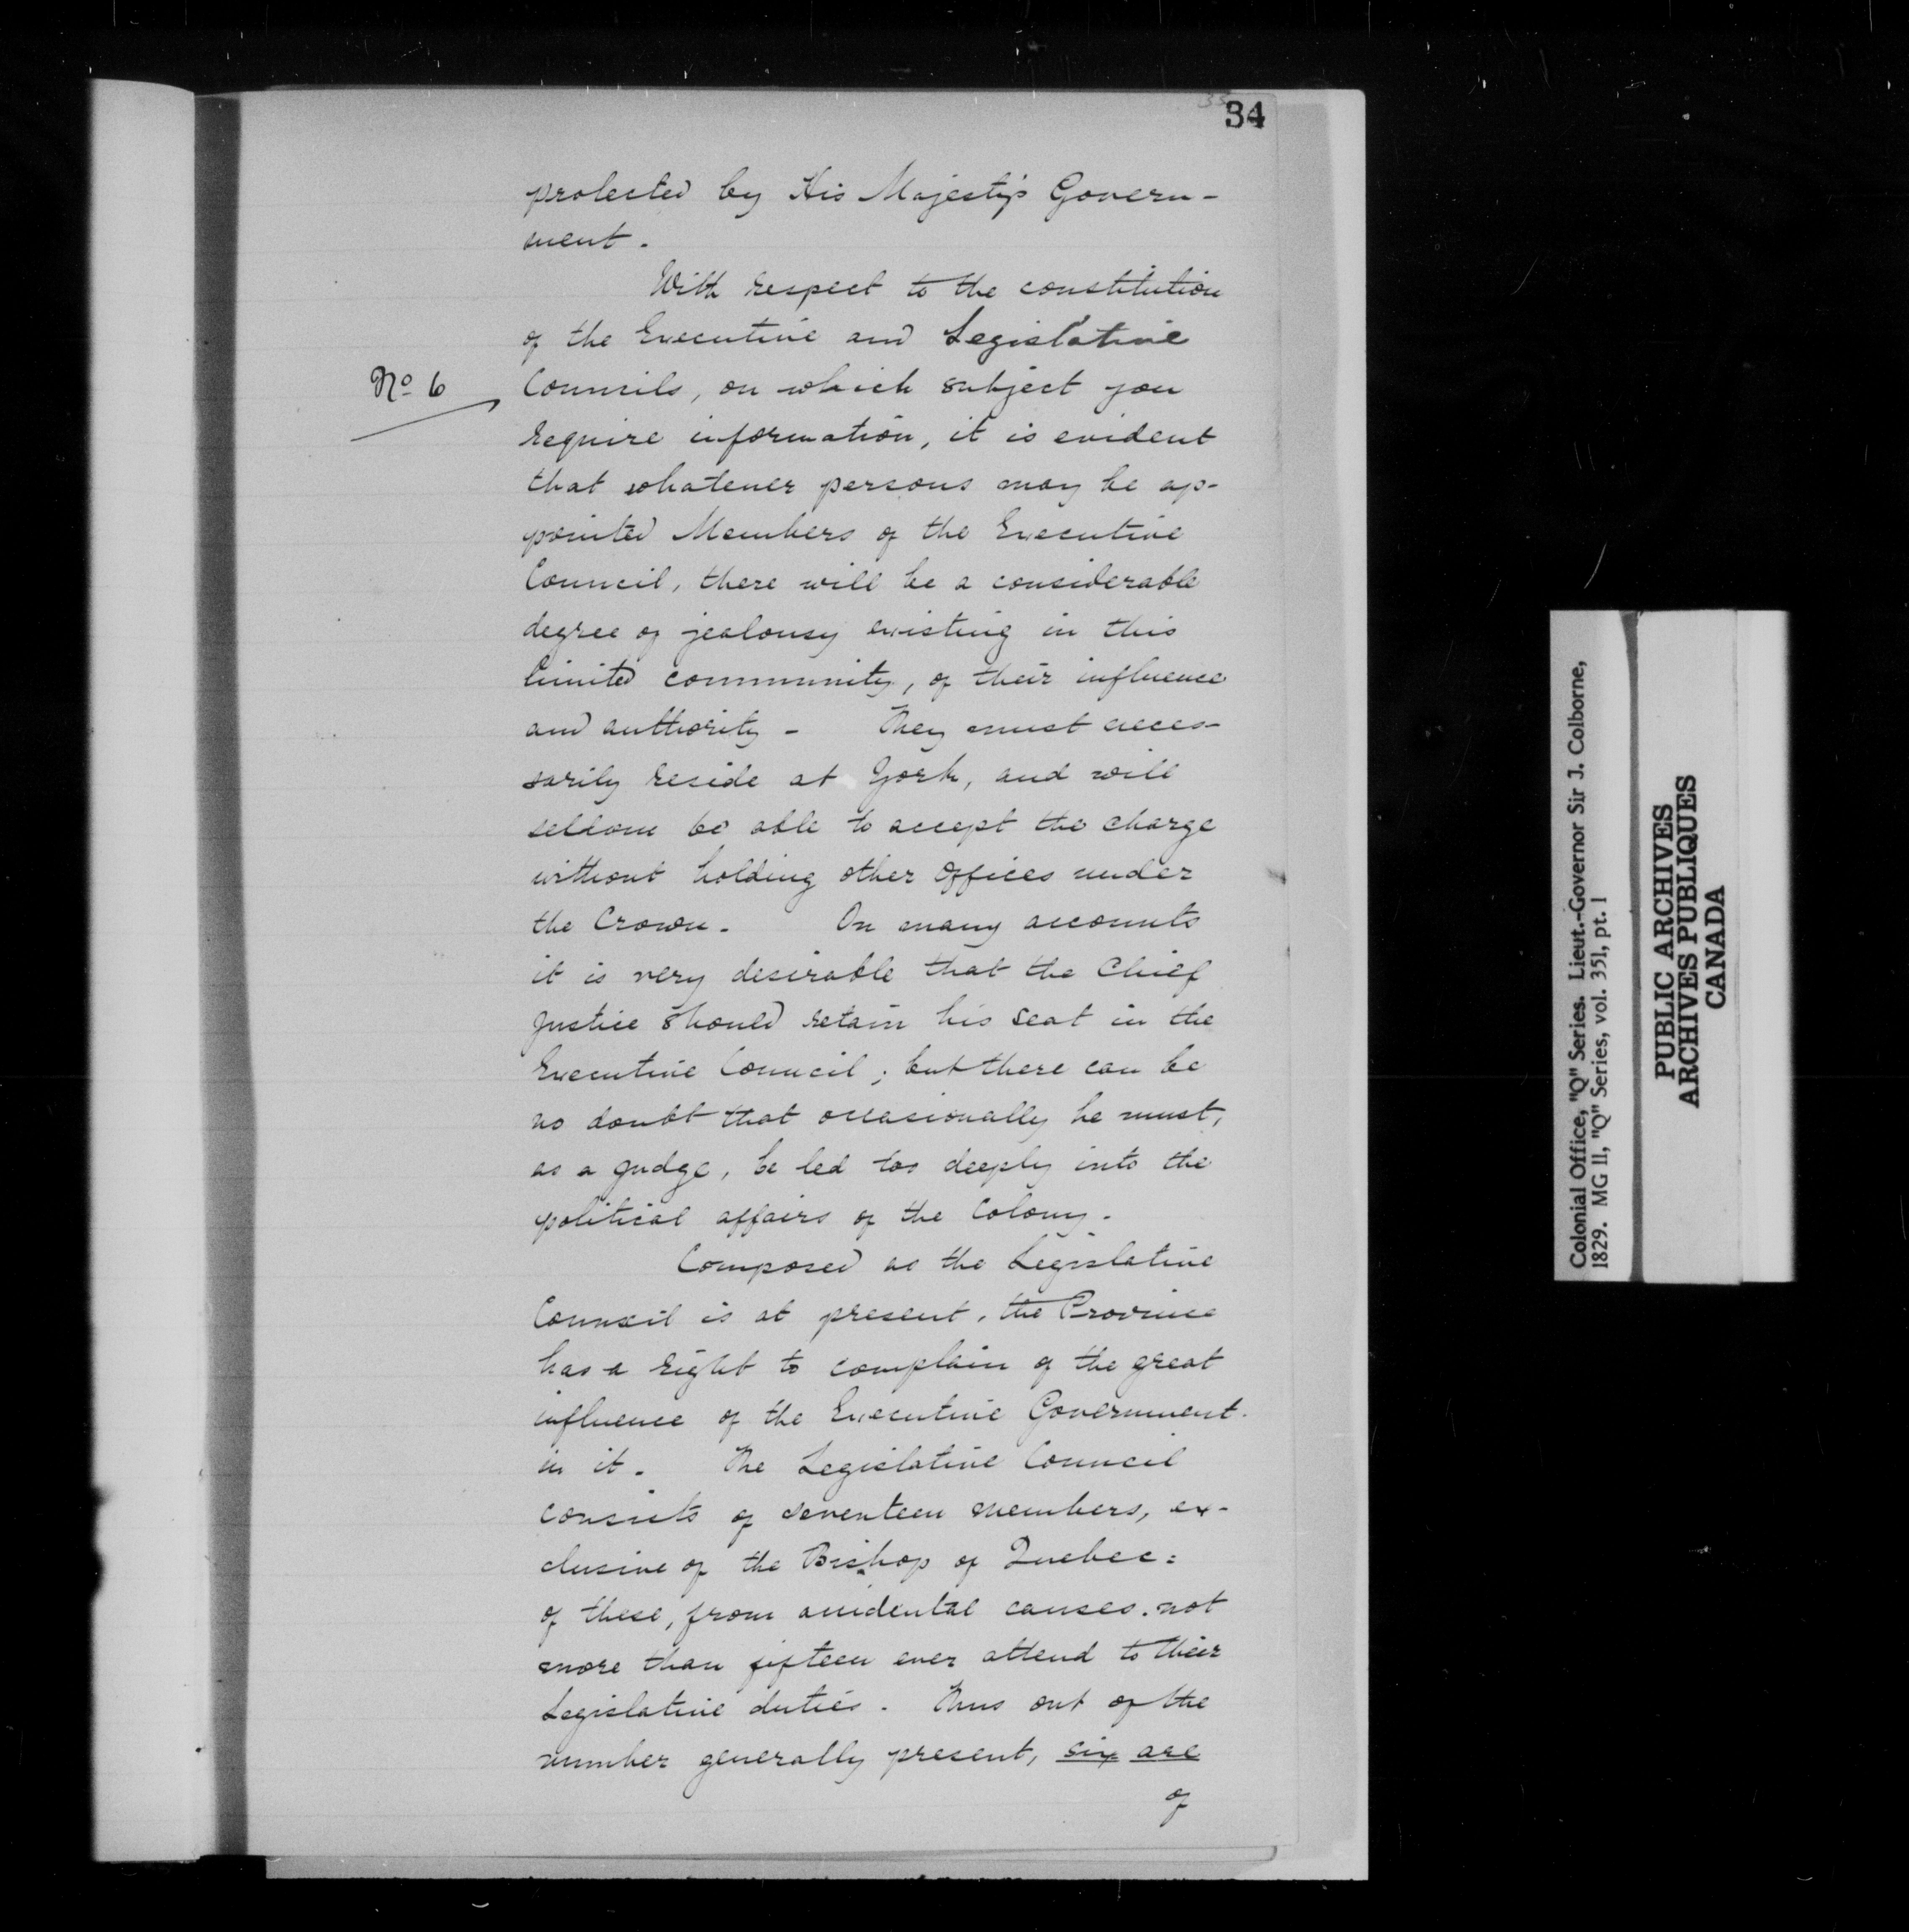 34
protected by His Majesty's Govern-
ment.
With respect to the constitution
of the Executive and Legislative
No 6
Councils, on which subject you
require information, it is evident
that whatever persons may be ap-
pointed Members of the Executive
Council, there will be a considerable
degree of jealousy existing in this
limited community, of their influence
and authority - They must neces-
sarily reside at York, and will
seldom be able to accept the charge
without holding other offices under
the Crown. On many accounts
it is very desirable that the Chief
Justice should retain his seat in the
Executive Council; but there can be
no doubt that occasionally he must,
as a judge, be led too deeply into the
political affairs of the Colony.
Composed as the Legislative
Council is at present, the Province
has a right to complain of the great
influence of the Executive Government
in it. The Legislative Council
consists of seventeen members, ex-
clusive of the Bishop of Quebec:
of these, from accidental causes, not
more than fifteen ever attend to their
Legislative duties. Thus out of the
number generally present, six are
of
Colonial Office, "Q" Series. Lieut.-Governor Sir J. Colborne,
1829. MG 11, "Q" Series, vol. 351, pt. 1
PUBLIC ARCHIVES
ARCHIVES PUBLIQUES
CANADA